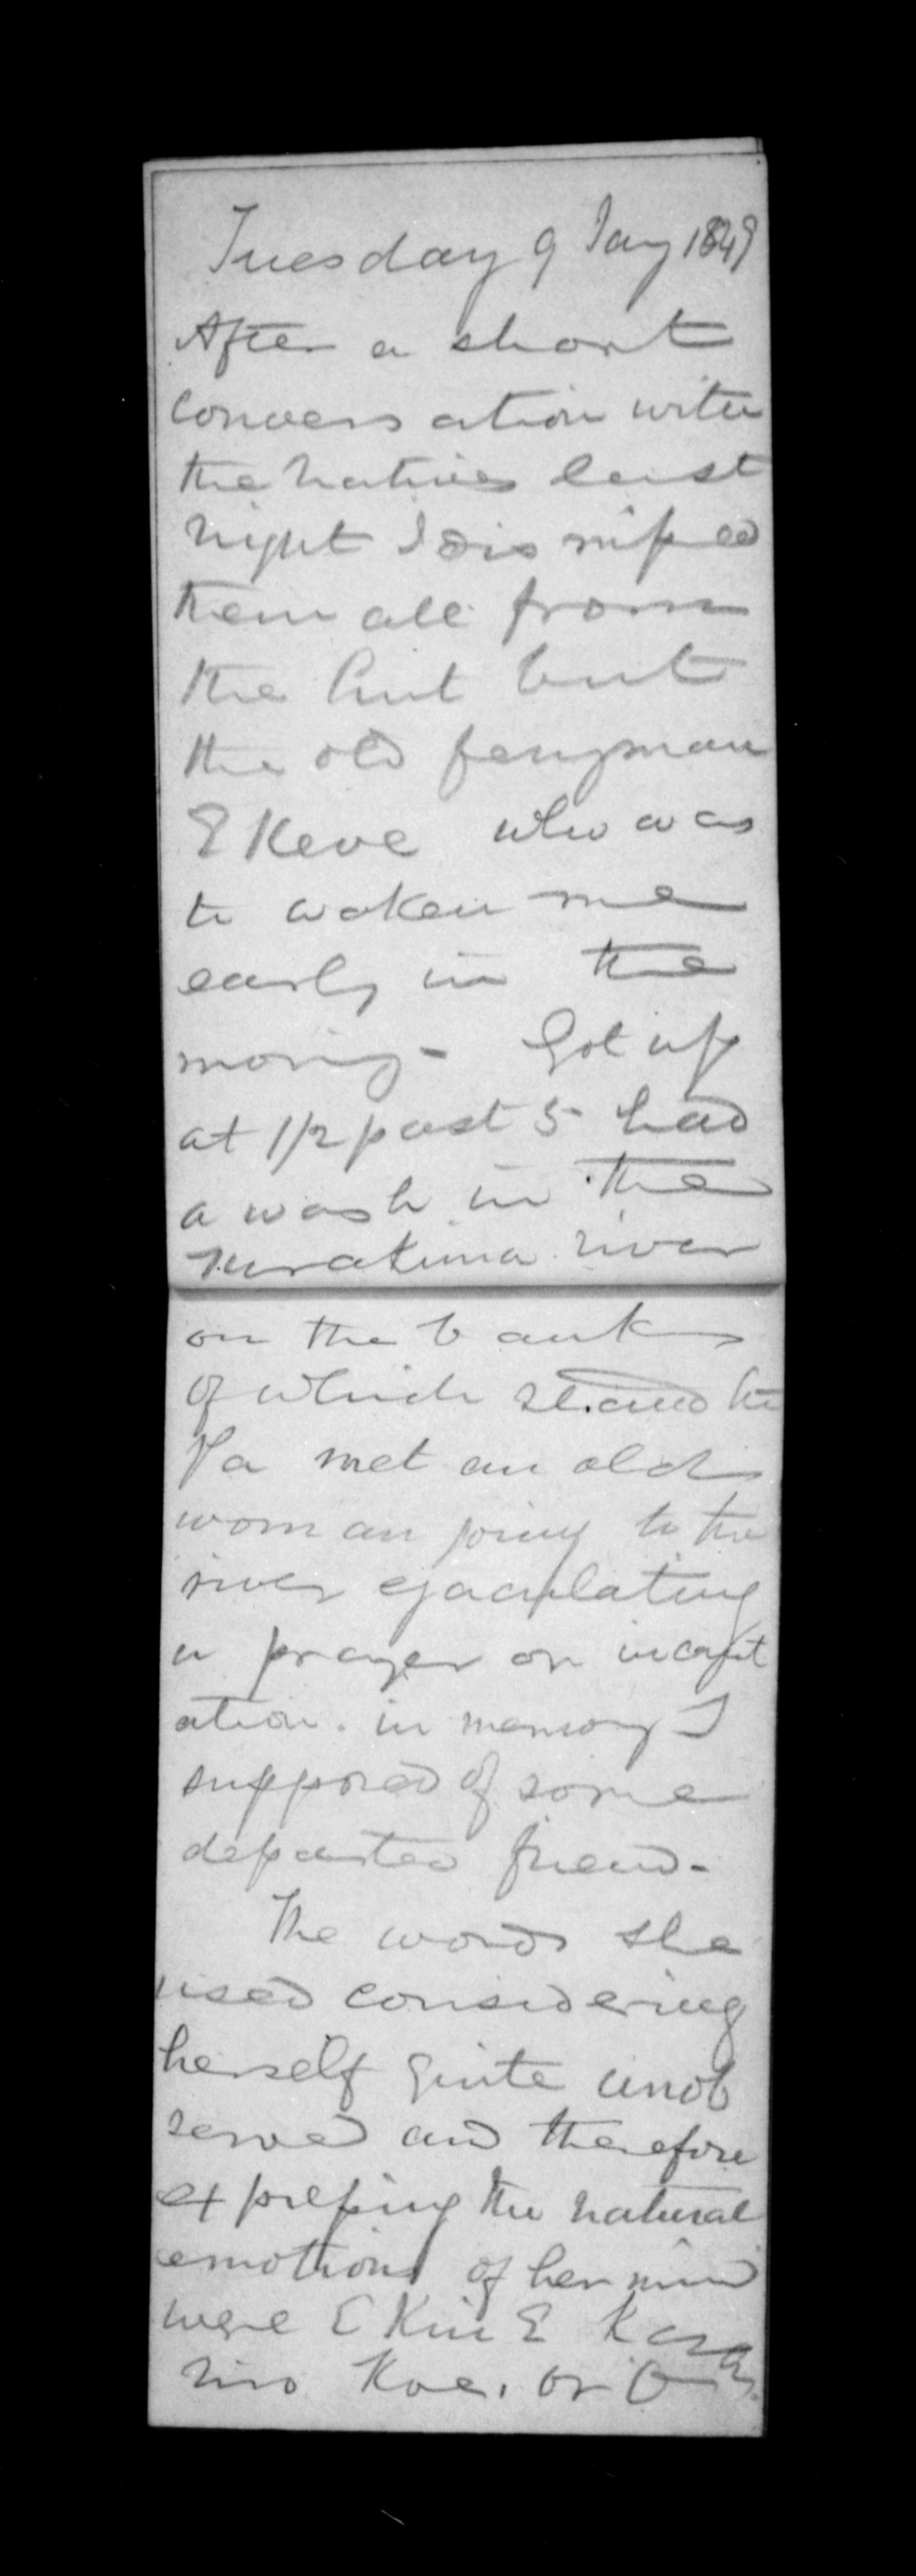 Tuesday 9 Jany 1849
After a short
conversation with
the natives last
night I dismissed
them all from
the hut but
the old ferryman
E Keve who was
to waken me
early in the
moring - Got up
at 1/2 past 5 had
a wash in the
river
on the banks
of which stand the
Pa met an old
woman going to the
river ejaculating
a prayer or incant
ation. in memory I
supposed of some
departed friend.
The words she
used considering
herself quite unob
served and therefore
expressing the natural
emotions of her mind
were E Kui E
Koe. or O